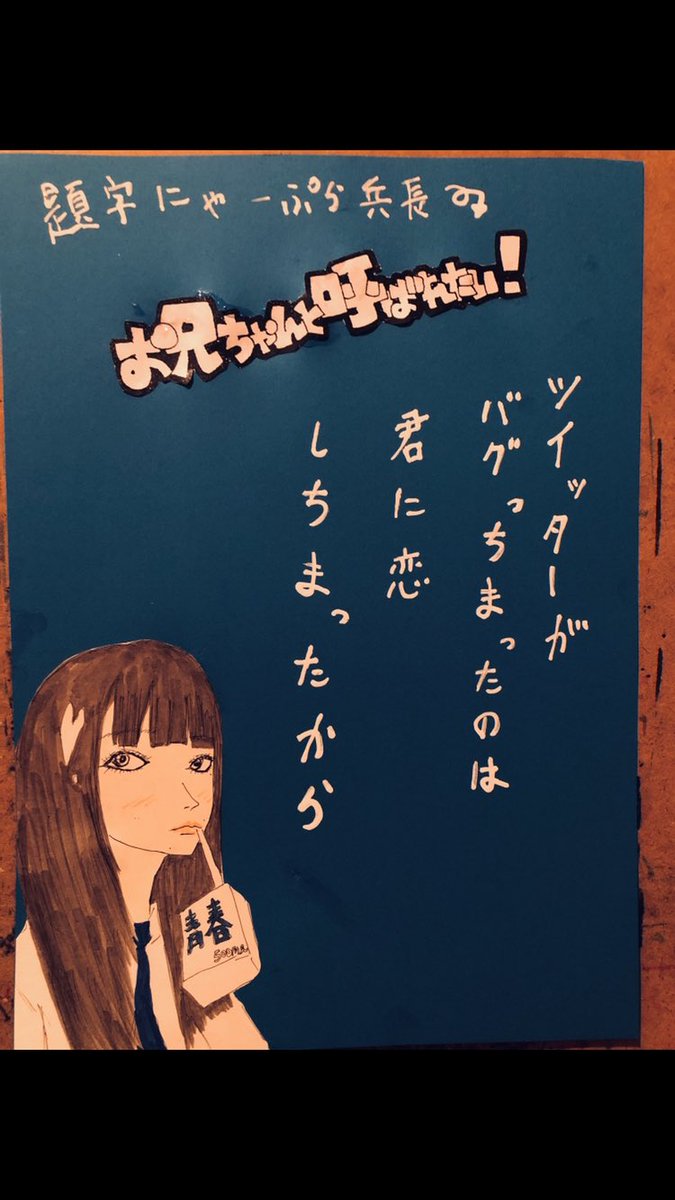 題字にゃーぷら兵長
お兄ちゃんと呼ばれたい!
ツイッターが
バグっちまったのは
君に恋
しちまったから
青春
500ml